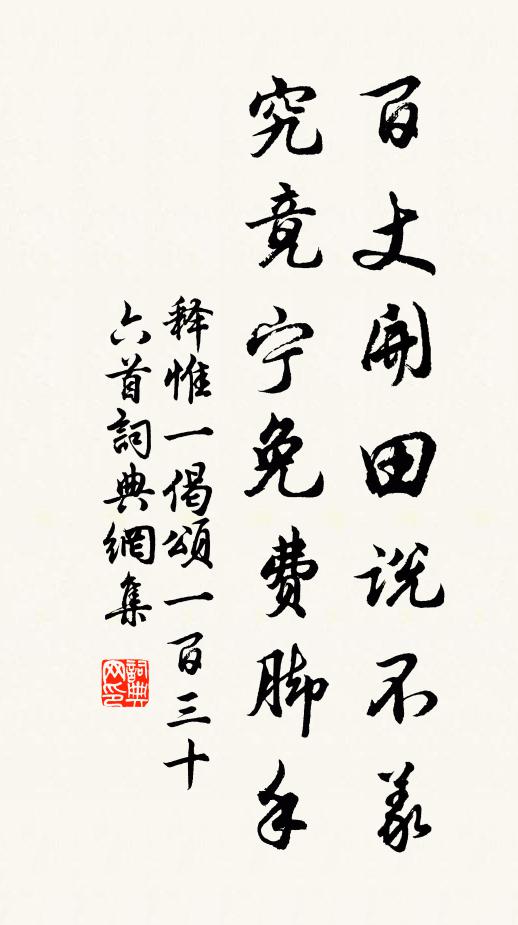 百丈開田说不義
究竟宁免费脚手
释惟一偈頌一百三十
六首詞典網集
詞典
网印